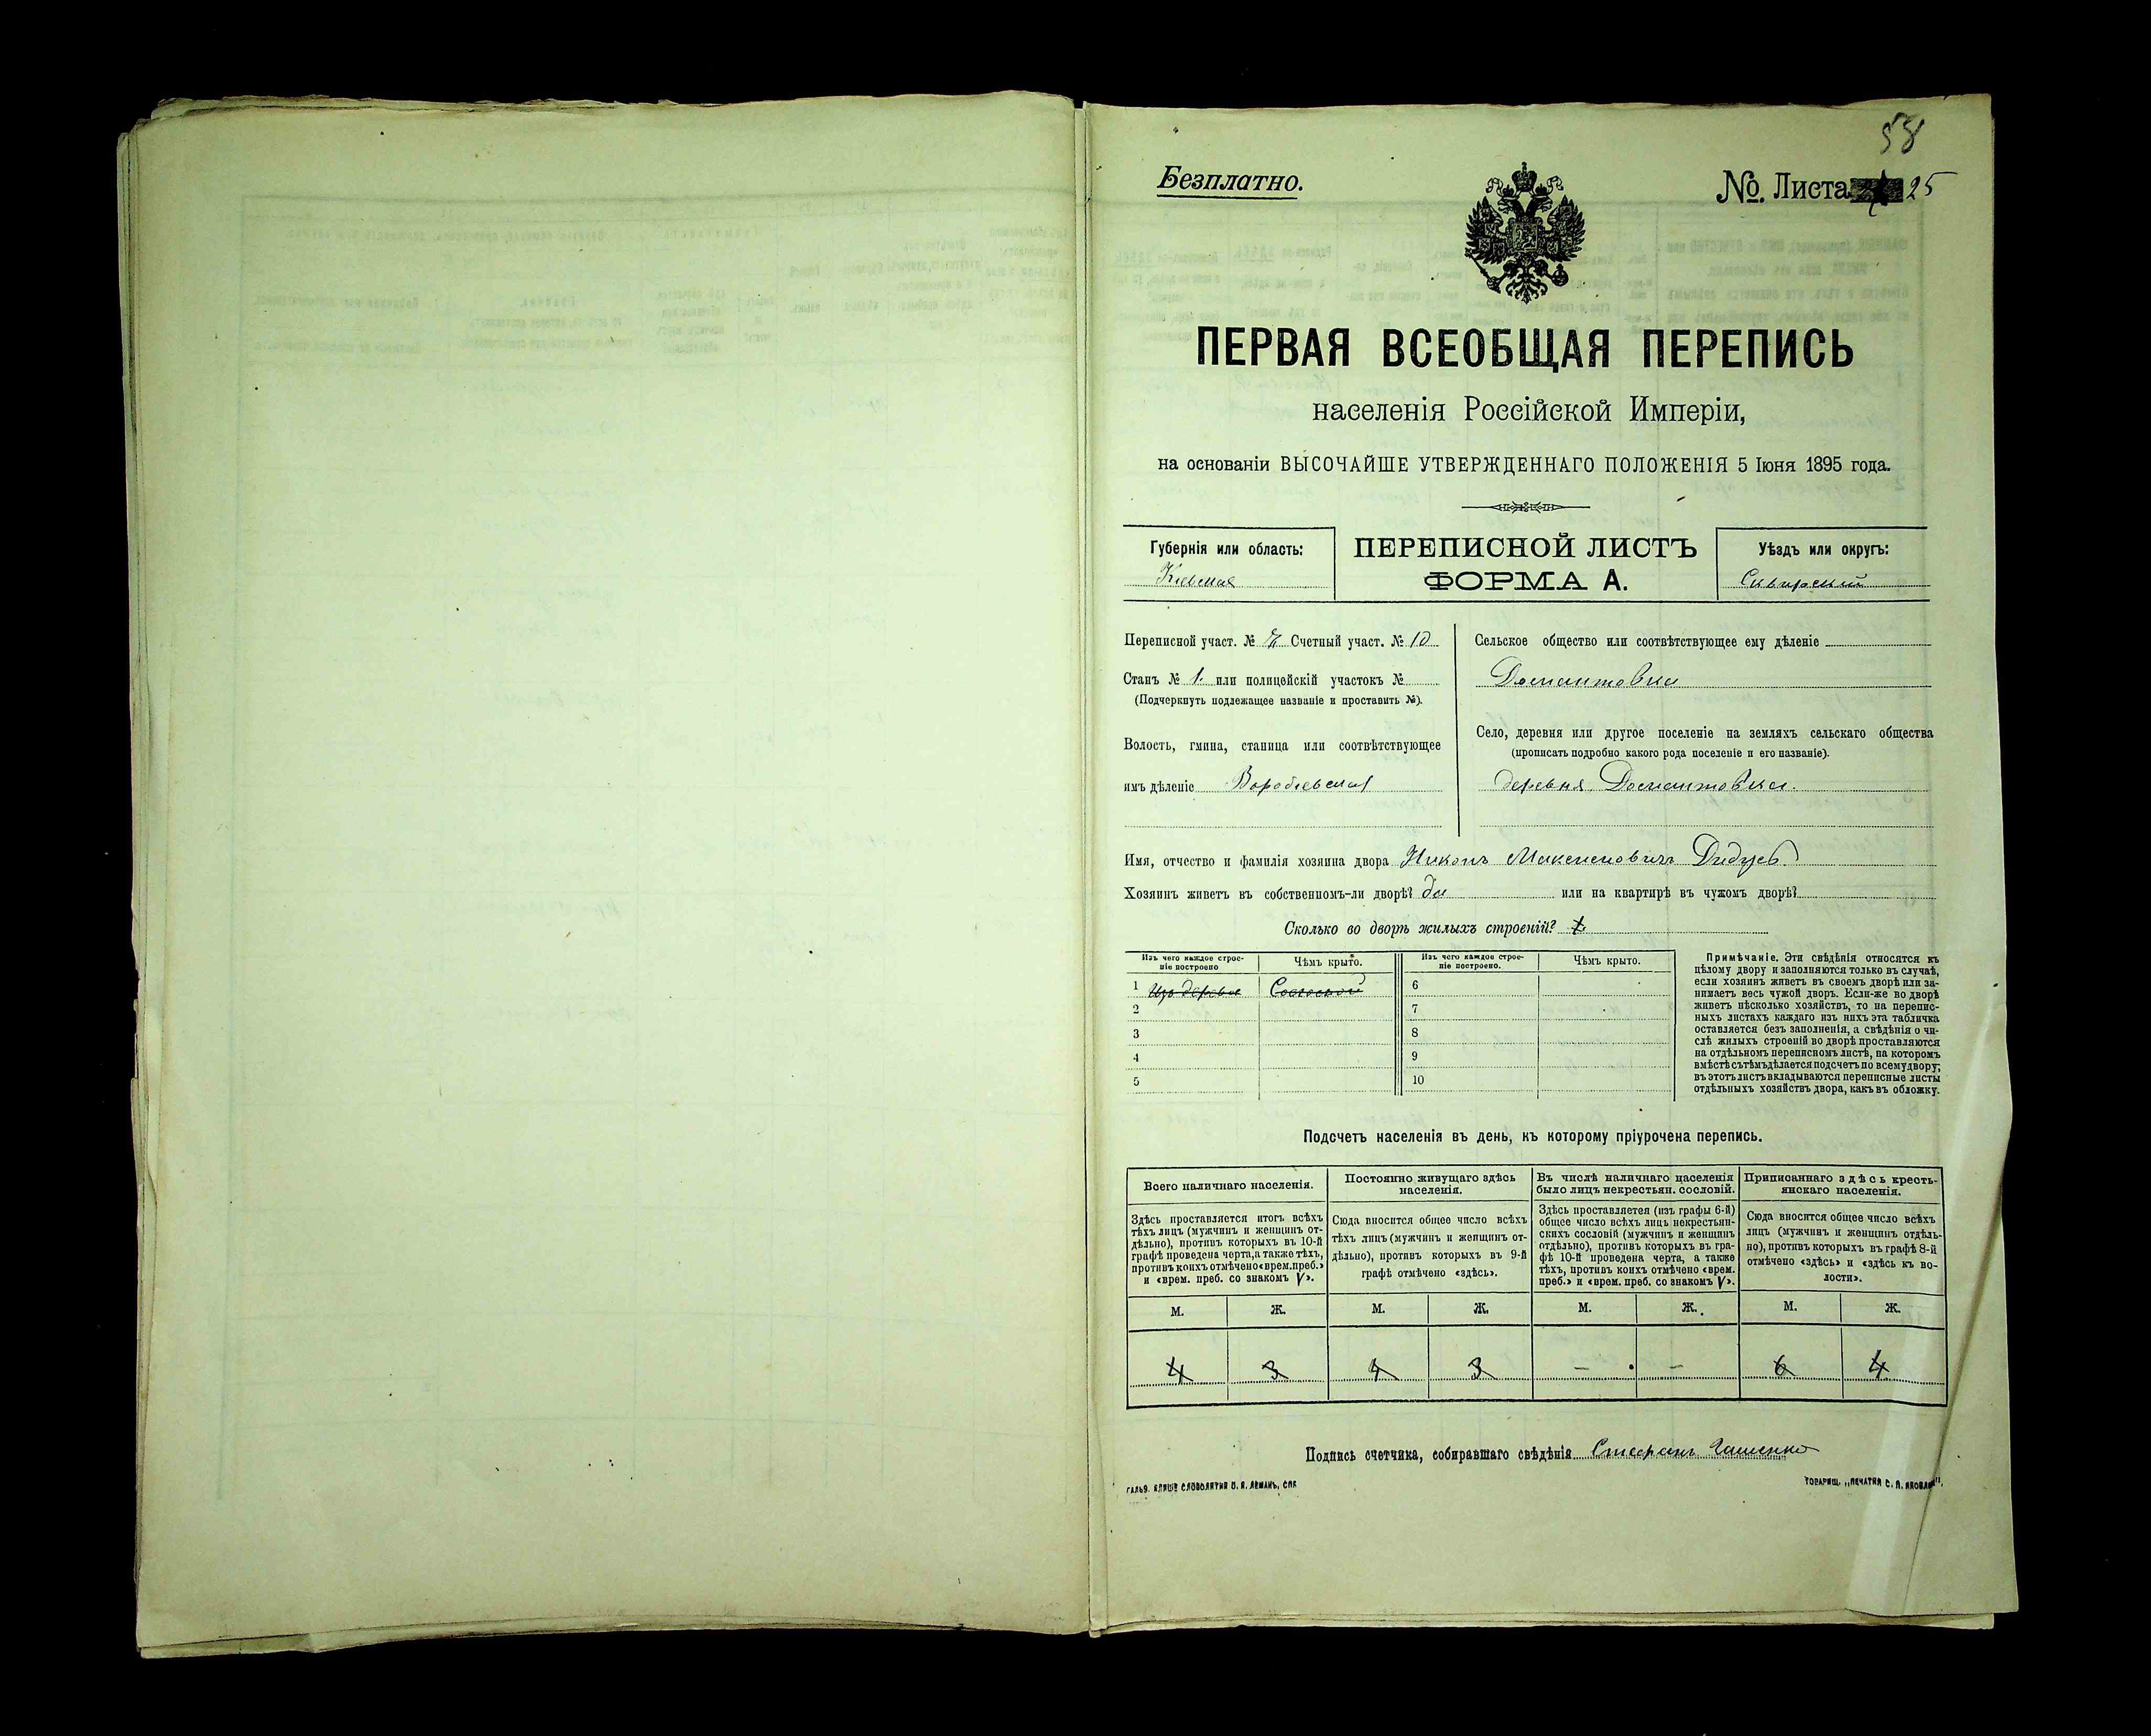 58
Безплатно.
№ Листа 25
ПЕРВАЯ ВСЕОБЩАЯ ПЕРЕПИСЬ
населенія Россійской Имперіи,
на основаніи ВЫСОЧАЙШЕ УТВЕРЖДЕННАГО ПОЛОЖЕНІЯ 5 Іюня 1895 года.
Губернія или область:
Кіевская
ПЕРЕПИСНОЙ ЛИСТЪ
ФОРМА А.
Уѣздъ или округъ:
Сквирскій
Переписной участ. № Счетный участ. № 10
Станъ № 1. или полицейскій участокъ №
(Подчеркнуть подлежащее названіе и проставить №).
Волость, гмина, станица или соотвѣтствующее
имъ дѣленіе Воробіевская
Сельское общество или соотвѣтствующее ему дѣленіе
Домантовка
Село, деревня или другое поселеніе на земляхъ сельскаго общества
(прописать подробно какого рода поселеніе и его названіе).
деревня Домантовка.
Имя, отчество и фамилія хозяина двора Никонъ Максимовичъ
Хозяинъ живетъ въ собственномъ-ли дворѣ? да или на квартирѣ въ чужомъ дворѣ?
Сколько во дворѣ жилыхъ строеній? 1
Изъ чего каждое строе-
ніе построено
Чѣмъ крыто.
Изъ чего каждое строе-
ніе построено.
Чѣмъ крыто.
1 Изъ дерева Соломой
2
3
4
5
6
7
8
9
10
Примѣчаніе. Эти свѣдѣнія относятся къ
цѣлому двору и заполняются только въ случаѣ,
если хозяинъ живетъ въ своемъ дворѣ или за-
нимаетъ весь чужой дворъ. Если-же во дворѣ
живетъ нѣсколько хозяйствъ, то на перепис-
ныхъ листахъ каждаго изъ нихъ эта табличка
оставляется безъ заполненія, а свѣдѣнія о чи-
слѣ жилыхъ строеній во дворѣ проставляются
на отдѣльномъ переписномъ листѣ, на которомъ
вмѣстѣ съ тѣмъ дѣлается подсчетъ по всему двору;
въ этотъ листъ вкладываются переписные листы
отдѣльныхъ хозяйствъ двора, какъ въ обложку.
Подсчетъ населенія въ день, къ которому пріурочена перепись.
Всего наличнаго населенія.
Здѣсь проставляется итогъ всѣхъ
тѣхъ лицъ (мужчинъ и женщинъ от-
дѣльно), противъ которыхъ въ 10-й
графѣ проведена черта, а также тѣхъ,
противъ коихъ отмѣчено «врем. преб.»
и «врем. преб. со знакомъ V».
Постоянно живущаго здѣсь
населенія.
Сюда вносится общее число всѣхъ
тѣхъ лицъ (мужчинъ и женщинъ от-
дѣльно), противъ которыхъ въ 9-й
графѣ отмѣчено «здѣсь».
Въ числѣ наличнаго населенія
было лицъ некрестьян. сословій.
Здѣсь проставляется (изъ графы 6-й)
общее число всѣхъ лицъ некрестьян-
скихъ сословій (мужчинъ и женщинъ
отдѣльно), противъ которыхъ въ гра-
фѣ 10-й проведена черта, а также
тѣхъ, противъ коихъ отмѣчено «врем.
преб.» и «врем. преб. со знакомъ V».
Приписаннаго здѣсь кресть-
янскаго населенія.
Сюда вносится общее число всѣхъ
лицъ (мужчинъ и женщинъ отдѣль-
но), противъ которыхъ въ графѣ 8-й
отмѣчено «здѣсь» и «здѣсь къ во-
лости».
М. Ж. М. Ж. М. Ж. М. Ж.
4 3 4 3 – – 6 4
Подпись счетчика, собиравшаго свѣдѣнія Стефанъ
ГАЛЬВ. КЛИШЕ СЛОВОЛИТНИ О. И. ЛЕМАНЪ, СПБ
ТОВАРИЩ. „ПЕЧАТНЯ С. П. ЯКОВЛЕВА".